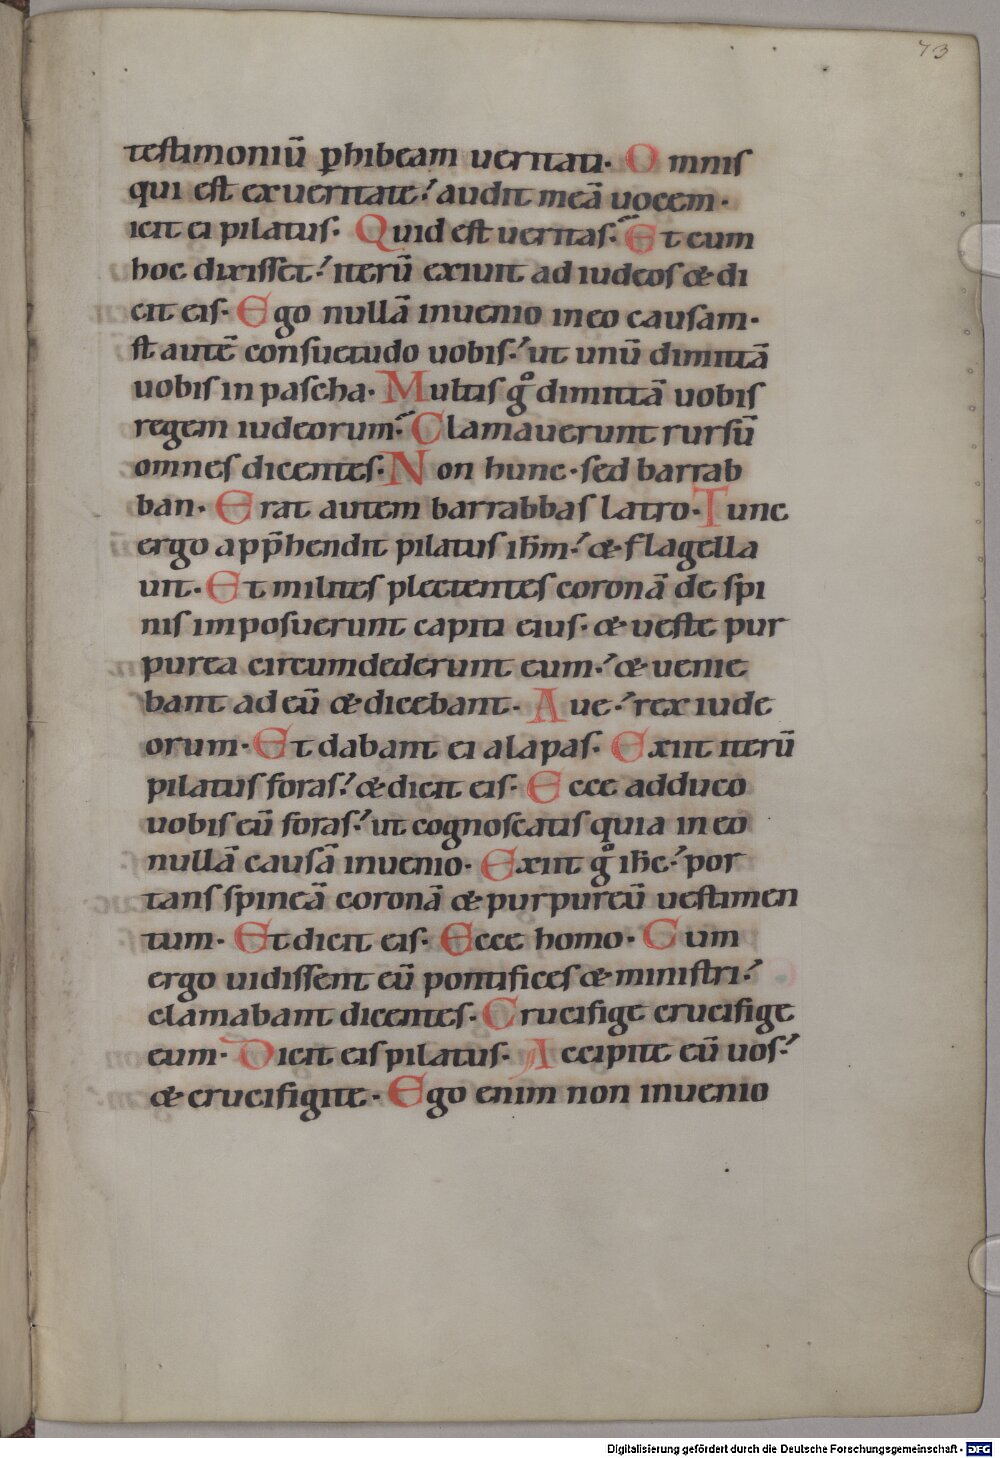 73
testimoniū ꝑhibeam ueritati. Omnis
qui est ex ueritate? audit meā uocem.
icit ei pilatus. Quid est ueritas? Et cum
hoc dixisset? iterū exiuit ad iudeos & di
cit eis. Ego nullā inuenio in eo causam.
st autē consuetudo uobis? ut unū dimittā
uobis in pascha. Multis gͦ dimittā uobis
regem iudeorum? Clamauerunt rursū
omnes dicentes. Non hunc. sed barrab
ban. Erat autem barrabbas latro. Tunc
ergo app̄hendit pilatus ihm̄? & flagella
uit. Et milites plectentes coronā de spi
nis imposuerunt capiti eius. & ueste pur
purea circumdederunt eum? & uenie
bant ad eū & dicebant. Aue? rex iude
orum. Et dabant ei alapas. Exiit iterū
pilatus foras? & dicit eis. Ecce adduco
uobis eū foras? ut cognoscatis quia in eo
nullā causā inuenio. Exiit gͦ ihc̄? por
tans spineā coronā & purpureū uestimen
tum. Et dicit eis. Ecce homo. Cum
ergo uidissent eū pontifices & ministri?
clamabant dicentes. Crucifige crucifige
eum. Dicit eis pilatus. Accipite eū uos?
& crucifigite. Ego enim non inuenio
Digitalisierung gefördert durch die Deutsche Forschungsgemeinschaft - DFG